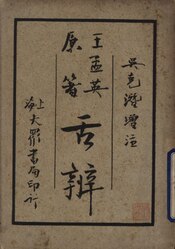 吳克潛增注
王孟英
原著
舌辨
上海大眾書局印行